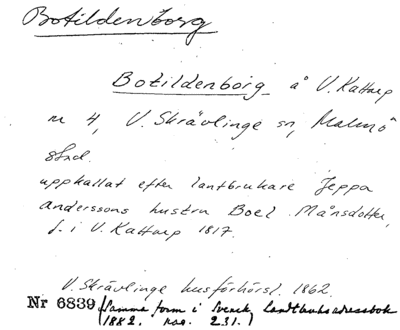 Botildenborg
Botildenborg å V. Kattarp
nr 4, V. Skrävlinge sn, Malmö
stad.
uppkallat efter lantbrukare Jeppa
Anderssons hustru Boel Månsdotter,
f. i V. Kattarp 1817.
V. Skrävlinge husförhörsl. 1862.
Nr 6839 (Samma form i Svensk landtbruksadressbok
1882. 231.)